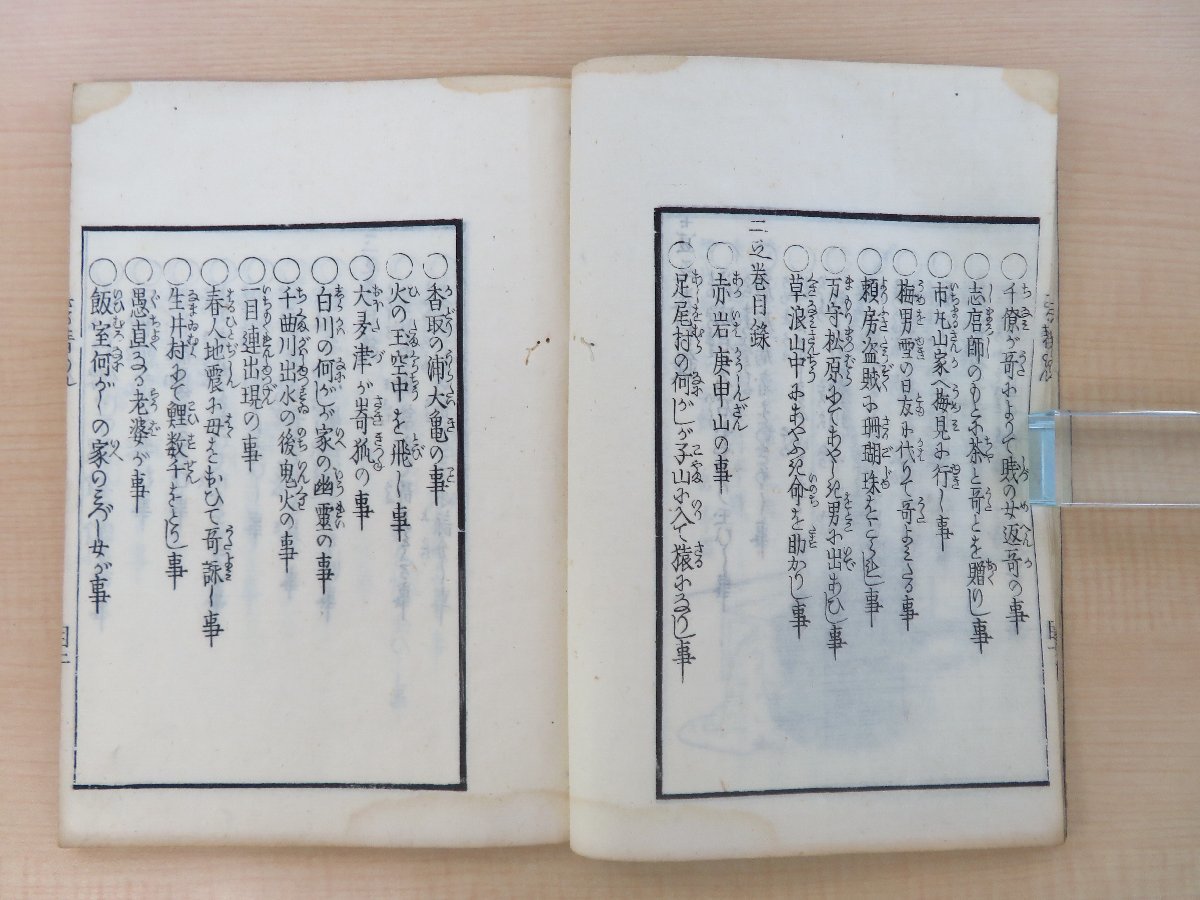 ○千僚が哥によりて賎の女返哥の事
○志店師のもとに茶と哥とを贈りし事
○市丸山家へ梅見に行し事
○梅男雪の日友に代りて哥よミたる事
○頼房盗賊に珊瑚珠をとられし事
○万守松原にてあやしき男に出あひし事
○草浪山中にあやふき命を助かりし事
二之巻目録
○赤岩庚申山の事
○足尾村の何がしが子山に入て猿になりし事
○香取の浦大亀の事
○火の玉空中を飛し事
○大麦津が崎狐の事
○白川の何がしが家の幽霊の事
○千曲川出水の後鬼火の事
○一目連出現の事
○春人地震に母をおひて哥詠し事
○生井村にて鯉数千をとりし事
○愚直なる老婆が事
○飯室何がしの家のミざし女が事